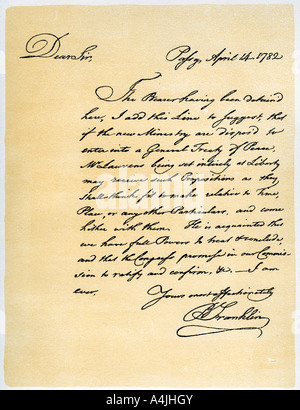 Dear Sir, Passy, April 14. 1782
The Bearer having been detained
here, I add this Line to suggest, that
if the new Ministry are dispos'd to
enter into a General Treaty of Peace,
Mr Laurens being set intirely at Liberty
may receive such Propositions as they
shall think fit to make relative to Time,
Place, or any other Particulars, and come
hither with them. He is acquainted that
we have full Powers to treat & conclude,
and that the Congress promise in our Commis-
sion to ratify and confirm, &c. — I am
ever,
Yours most affectionately
B Franklin
alamy
A4JHGY